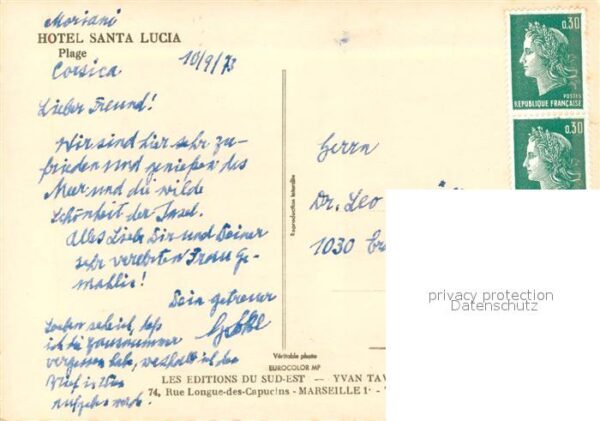 Moriani
HOTEL SANTA LUCIA
Plage
Corsica 10/9/73
Lieber Freund!
Wir sind hier sehr zu-
frieden und genießen des
Meer und die wilde
Schönheit der Insel.
Alles Liebe Dir und Deiner
sehr verehrten Frau Ge-
mahlin!
Dein getreuer
Soeben sehe ich, daß
ich die Hausnummer
vergessen habe, weshalb ich den
Brief in Wien
aufgeben werde!
Herrn
Dr. Leo
1030
0.30
POSTES
REPUBLIQUE FRANÇAISE
0.30
Reproduction interdite
privacy protection
Datenschutz
Véritable photo
EUROCOLOR MP
LES EDITIONS DU SUD-EST — YVAN TAV
74, Rue Longue-des-Capucins - MARSEILLE 1